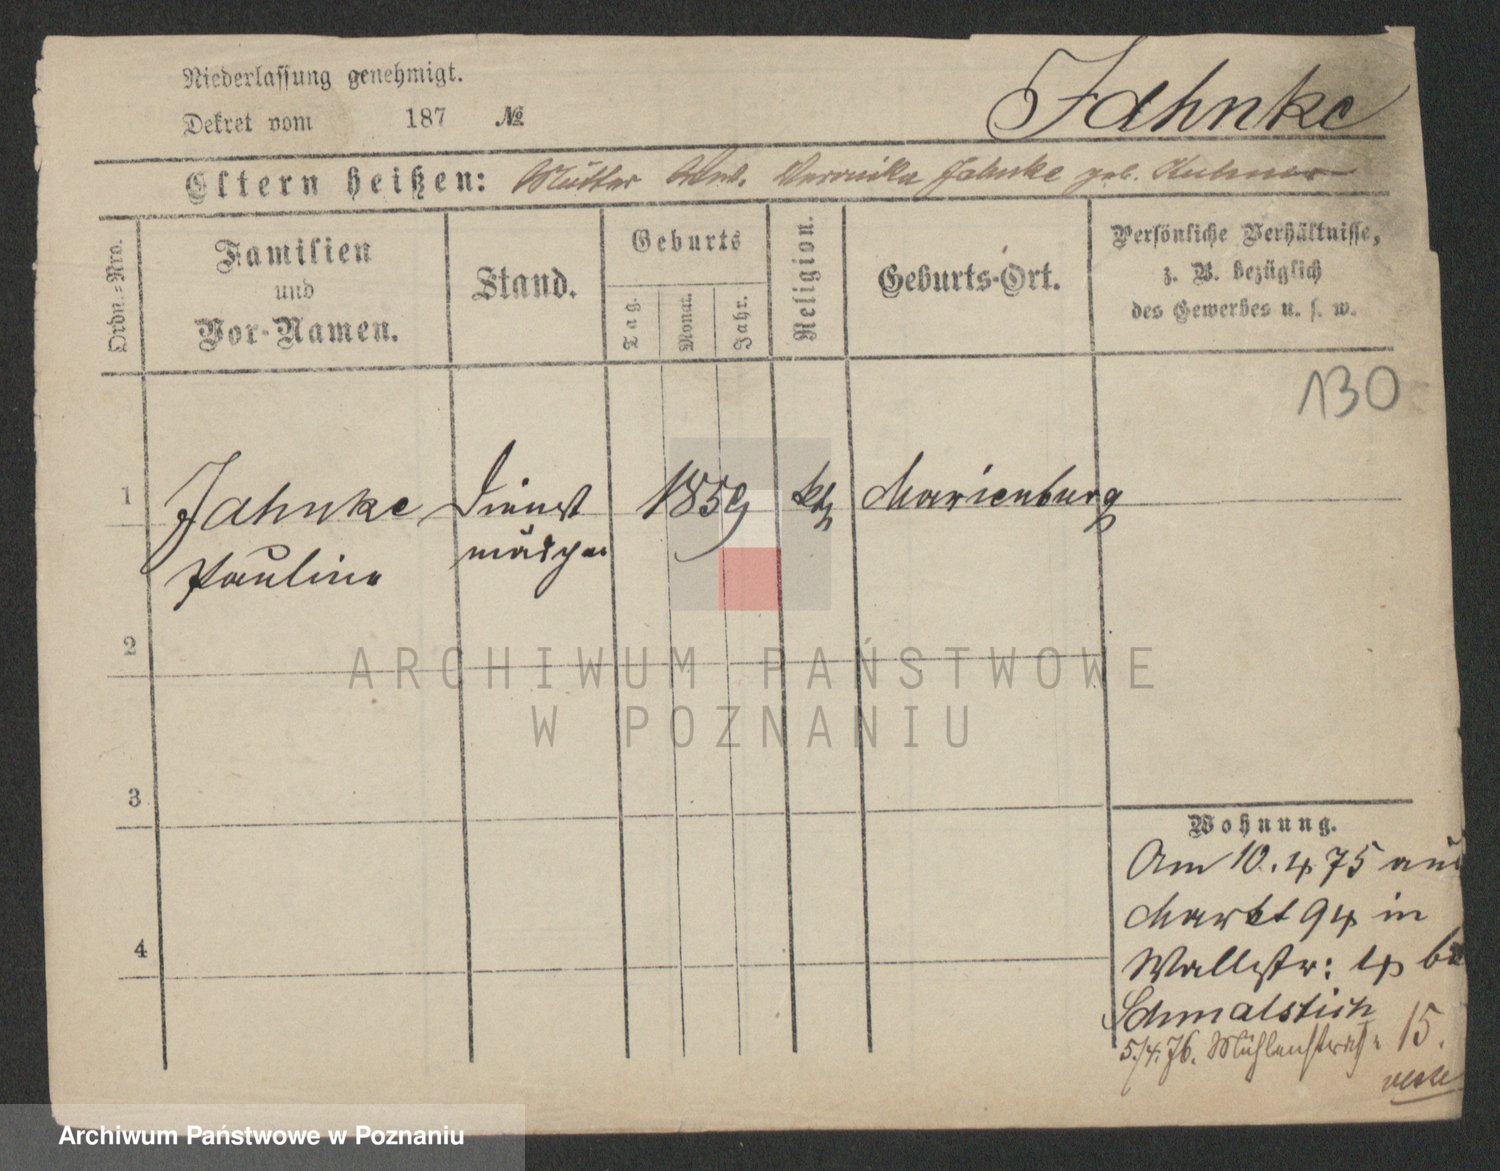 Niederlassung genehmigt.
Jahnke
Dekret vom 187 №
Eltern heißen: Mutter Wwe. Veronika Jahnke geb.
Ordn.-Nro.
Familien
und
Vor-Namen.
Stand.
Geburts
Tag.
Monat.
Jahr.
Religion.
Geburts-Ort.
Persönliche Verhältnisse,
z. B. bezüglich
des Gewerbes u. s. w.
130
1 Jahnke Dienst 1859 kth Marienburg
Pauline mädchen
2
ARCHIWUM PAŃSTWOWE
W POZNANIU
3
Wohnung.
Am 10.4 75 aus
Markt 94 in
4
Wallstr: 4 bei
Schmalstich
5/4.76. Mühlenstraße 15.
Archiwum Państwowe w Poznaniu